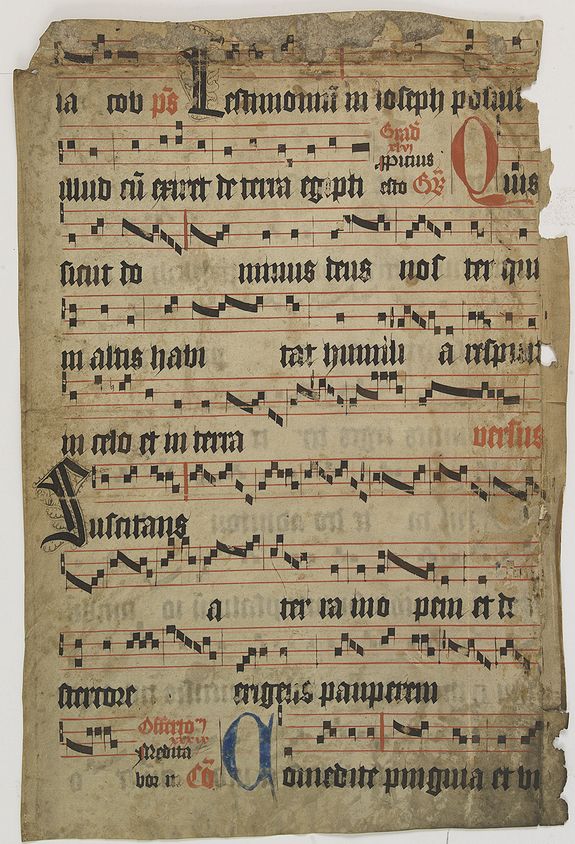 ia cob ps Testimoniū in ioseph posuit
illud cū exiret de terra egypti Grad xlvi spicius esto GR Quis
sicut do minus deus nos ter qui
in altis habi tat humili a respicit
in celo et in terra versus
Suscitans
a ter ra ino pem et de
stercore erigens pauperem
Offerto xxxix Medita bor in Cō Comedite pinguia et bi